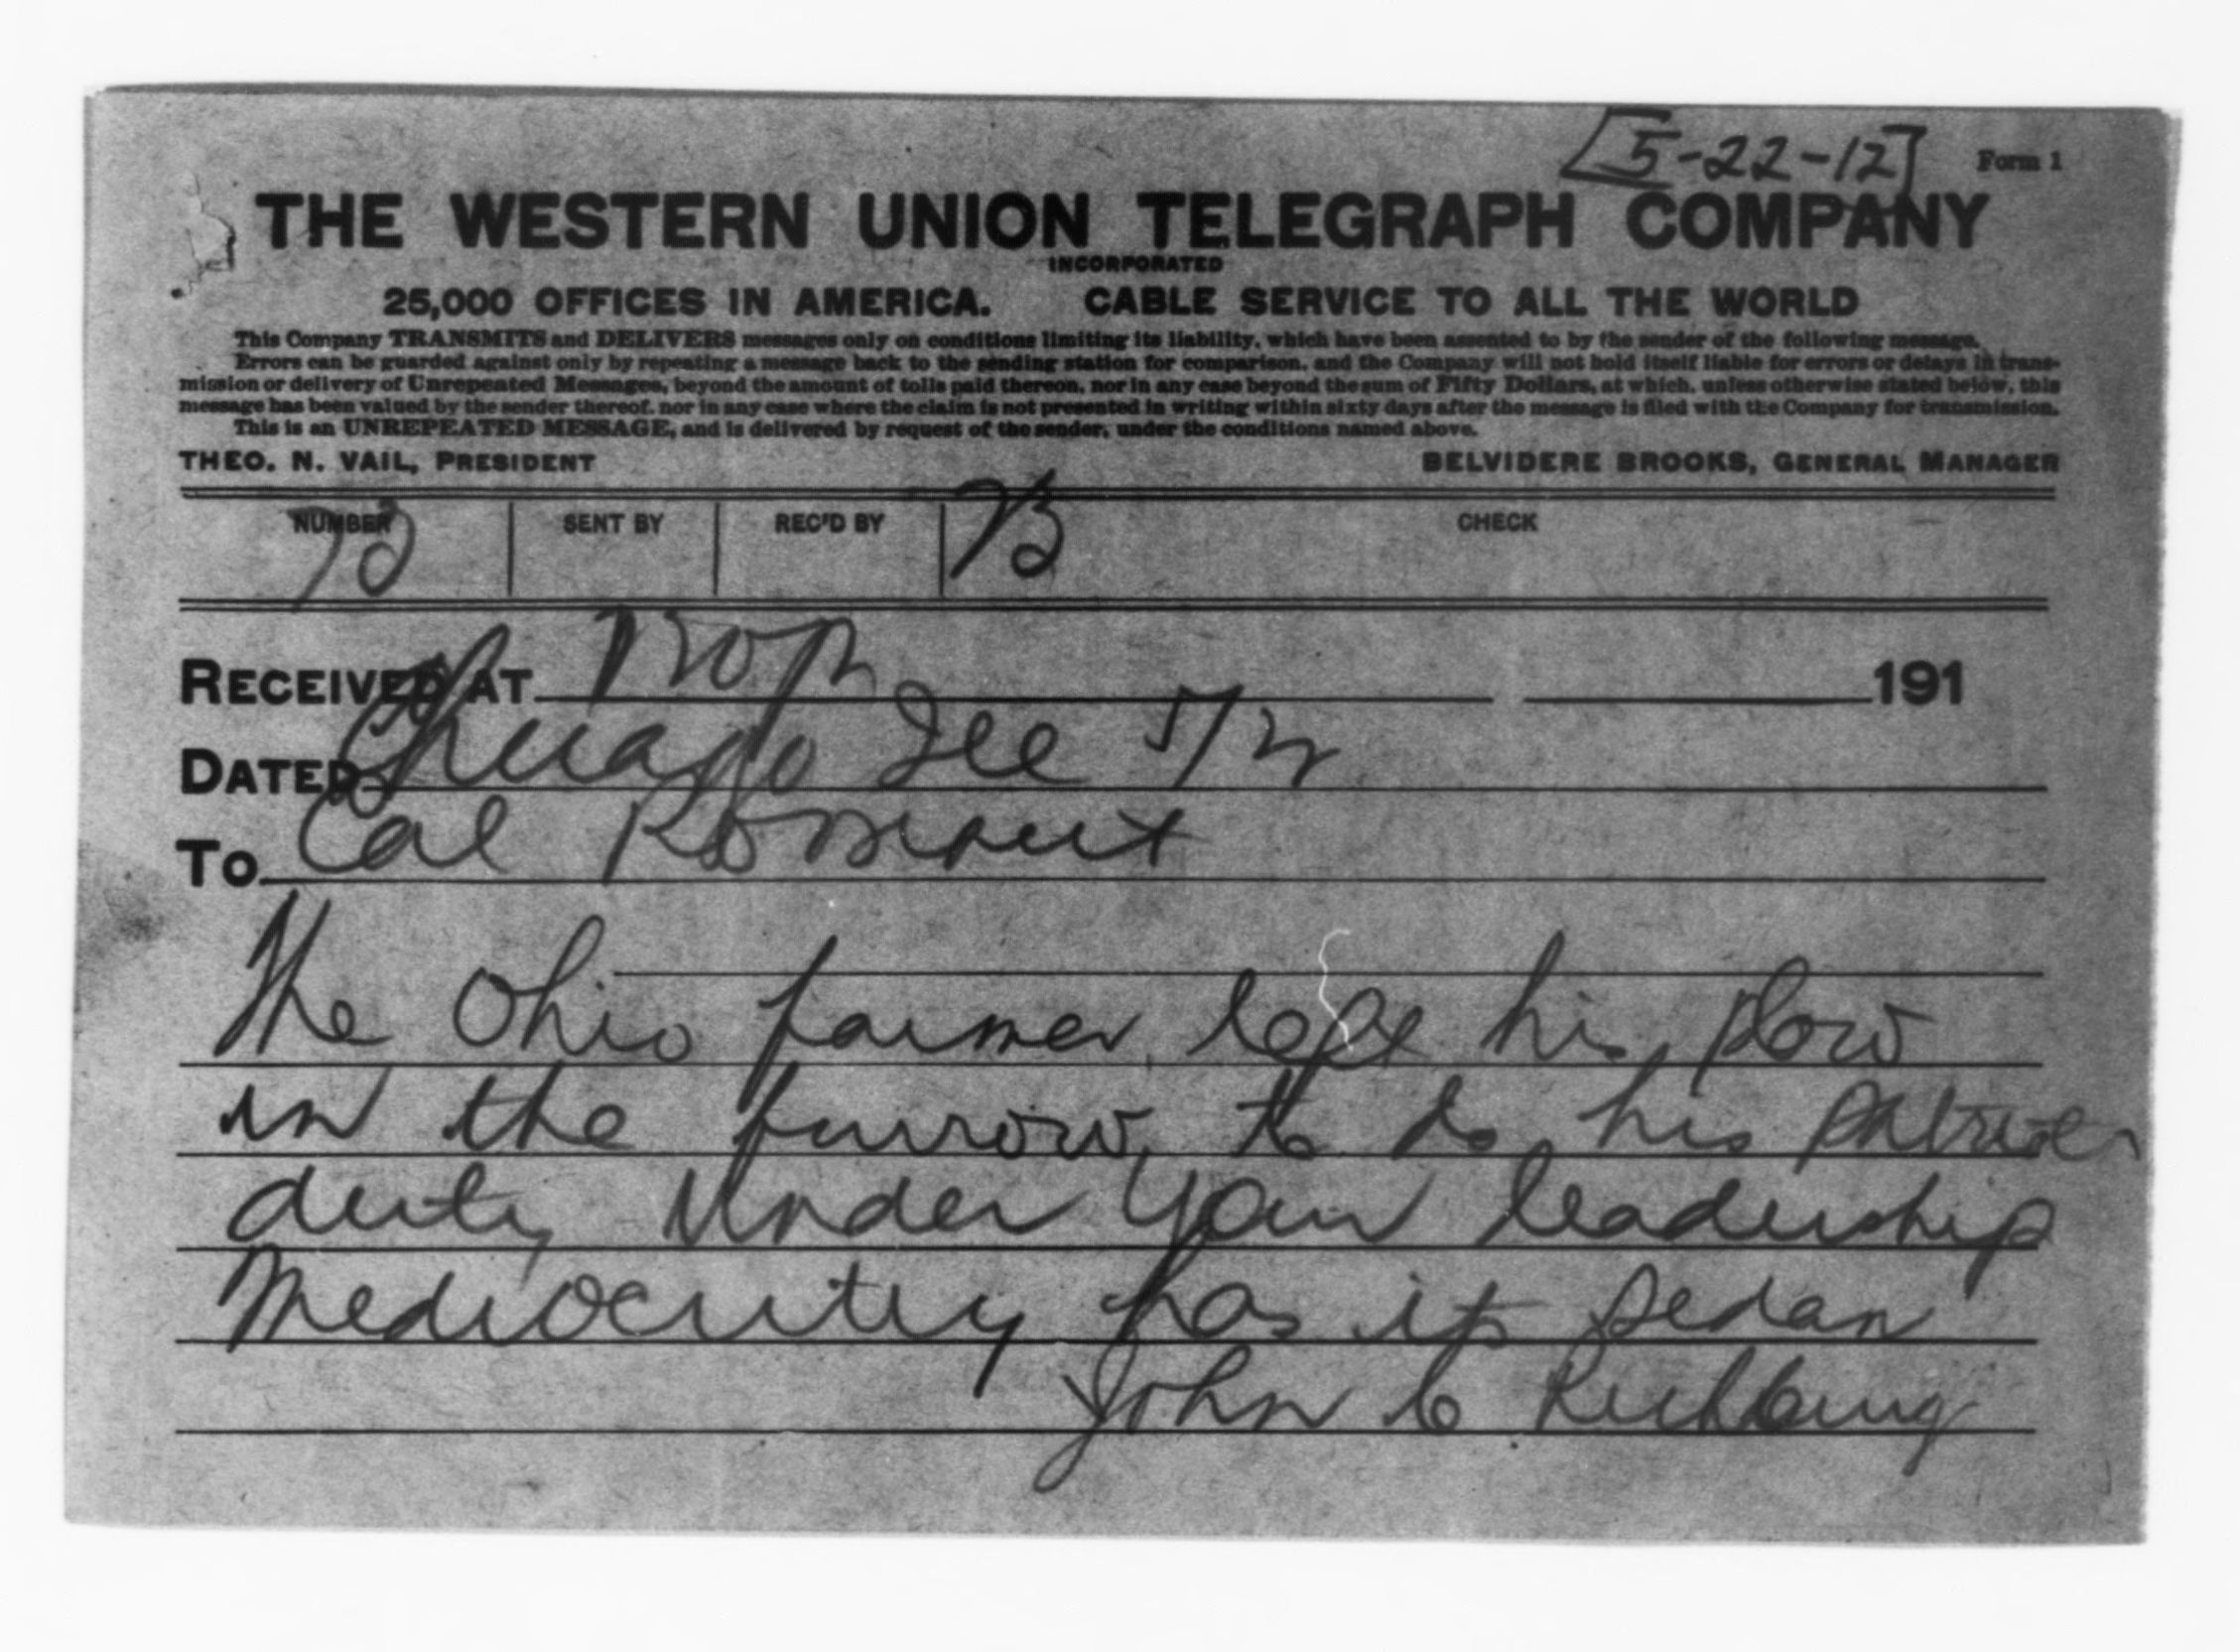 [5-22-12] Form 1
THE WESTERN UNION TELEGRAPH COMPANY
INCORPORATED
25,000 OFFICES IN AMERICA. CABLE SERVICE TO ALL THE WORLD
This Company TRANSMITS and DELIVERS messages only on conditions limiting its liability, which have been assented to by the sender of the following message.
Errors can be guarded against only by repeating a message back to the sending station for comparison, and the Company will not hold itself liable for errors or delays in trans-
mission or delivery of Unrepeated Messages, beyond the amount of tolls paid thereon, nor in any case beyond the sum of Fifty Dollars, at which, unless otherwise stated below, this
message has been valued by the sender thereof, nor in any case where the claim is not presented in writing within sixty days after the message is filed with the Company for transmission.
This is an UNREPEATED MESSAGE, and is delivered by request of the sender, under the conditions named above.
THEO. N. VAIL, PRESIDENT BELVIDERE BROOKS, GENERAL MANAGER
NUMBER SENT BY REC'D BY CHECK
RECEIVED AT 191
DATED Chicago Ill 5/22
TO Col Roosevelt
The Ohio farmer left his plow
in the furrow to do his patriotic
duty Under Your leadership
Mediocrity has its sedan
John C Richberg